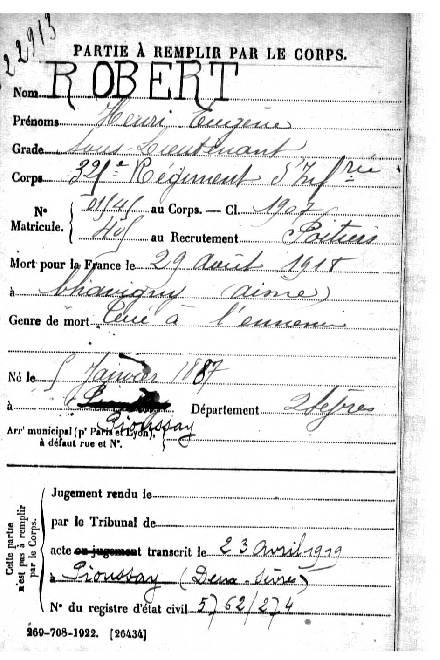 22913
PARTIE À REMPLIR PAR LE CORPS.
Nom ROBERT
Prénoms Henri Eugène
Grade Sous Lieutenant
Corps 321e Régiment d'Infrie
No 01145 au Corps. — Cl. 1907
Matricule. 405 au Recrutement Poitiers
Mort pour la France le 29 août 1918
à Chavigny (aisne)
Genre de mort Tué à l'ennemi
Né le 5 Janvier 1887
à Département 2 Sèvres
Pioussay
Arrt municipal (pr Paris et Lyon), à défaut rue et No.
Cette partie n'est pas à remplir par le Corps.
Jugement rendu le
par le Tribunal de
acte ou jugement transcrit le 23 avril 1919
à Pioussay (Deux-Sèvres)
No du registre d'état civil 5762/274
269-708-1922. [26434]